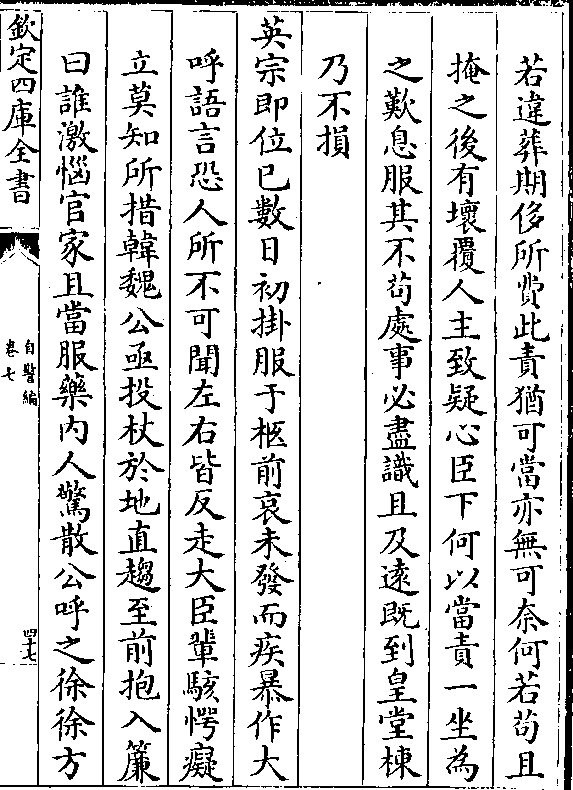 若違葬期侈所費此責猶可當亦無可奈何若苟且
掩之後有壞覆人主致疑心臣下何以當責一坐為
之歎息服其不苟處事必盡識且及遠既到皇堂棟
乃不損
英宗即位已數日初掛服于柩前哀未發而疾暴作大
呼語言恐人所不可聞左右皆反走大臣輩駭愕癡
立莫知所措韓魏公亟投杖於地直趨至前抱入簾
曰誰激惱官家且當服藥内人驚散公呼之徐徐方
欽定四庫全書
自警編
卷七
四十七